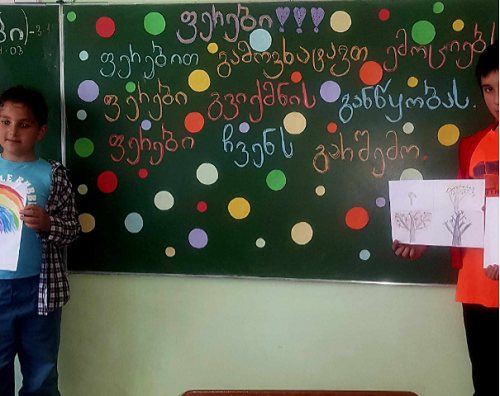 ფერები!!!
ფერებით გამოვხატავთ ემოციებს
ფერები გვიქმნის განწყობას.
ფერები ჩვენს გარშემო.